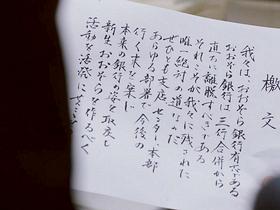 檄文
我々は、おおぞら銀行有志である
おおぞら銀行は三行合併から
直ちに離脱すべきである
それこそが我々に残された
唯一絶対の道なのだ
ぜひとも支店、センター、本部
あらゆる部署で今後の
行く末を案じ
本来の銀行の姿を取戻し
新生おおぞらを作るべく
活動を活発に